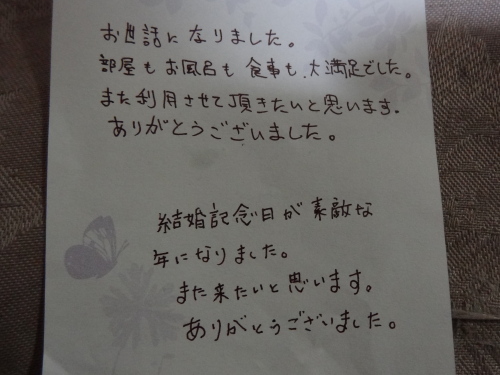 お世話になりました。
部屋もお風呂も食事も、大満足でした。
また利用させて頂きたいと思います.
ありがとうございました。
結婚記念日が素敵な
年になりました。
また来たいと思います。
ありがとうございました。